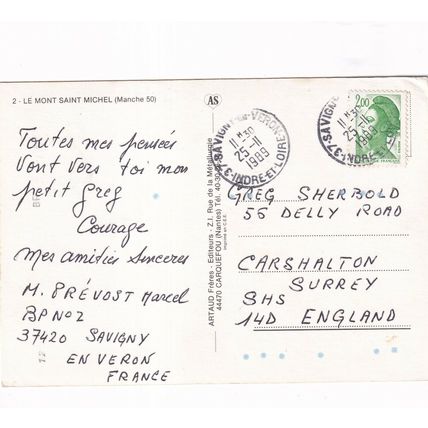 2 - LE MONT SAINT MICHEL (Manche 50)
AS
Toutes mes pensées
Vont vers toi mon
petit Greg
Courage
mes amitiés sincères
M. PRÉVOST Marcel
BP No2
37420 SAVIGNY
EN VERON
FRANCE
ARTAUD Frères - Editeurs - Z.I. Rue de la Métallurgie
44470 CARQUEFOU (Nantes) Tél. 40-30
Imprimé en C.E.E.
37-SAVIGNY-EN-VERON
11 H 30
25-11
1989
INDRE-ET-LOIRE
37-SAVIGNY
11 H 30
25-11
1989
INDRE-ET-LOIRE
2,00
GREG SHERBOLD
56 DELLY ROAD
CARSHALTON
SURREY
SHS
14D ENGLAND